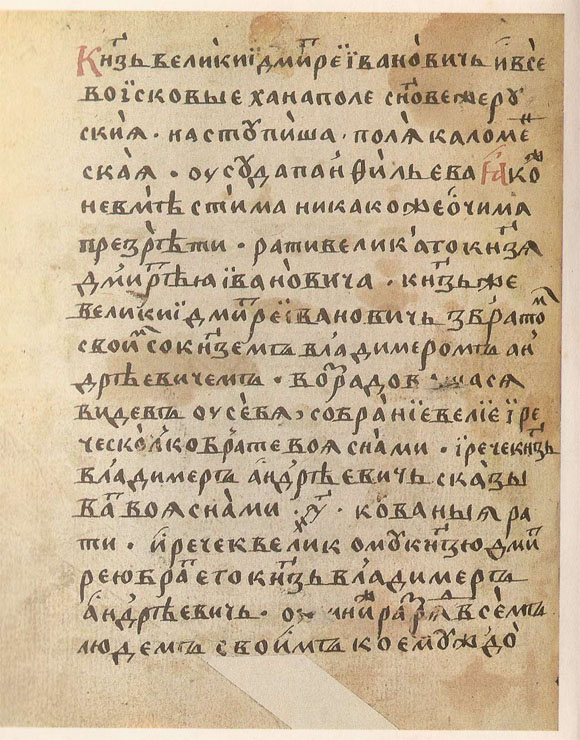 Кн҃зь великиї дмитреї їванович и все
воїсковые хана поле с новежеру
ския · наступиша · поля каломе
ская · оу суда панѳильева ꙗко
не вмѣстима никакоже очима
презрѣти · рати великаго кн҃зя
дмитрѣю ївановича · кн҃зь же
великиї дмитреї їванович з братом
своим со кн҃земъ владимеромъ ан
дрѣевичемъ ·
видевъ оу себя, собраниїе велие ї ре
че сколко брате воя с нами · ї рече кн҃зь
владимеръ андрѣевичь сказы
ва воя с нами · · кованыя ра
ти · ї рече к великому кн҃зю дми
рею брат его кн҃зь владимеръ
андрѣевичь · всемъ
людемъ своїмъ коемуждо